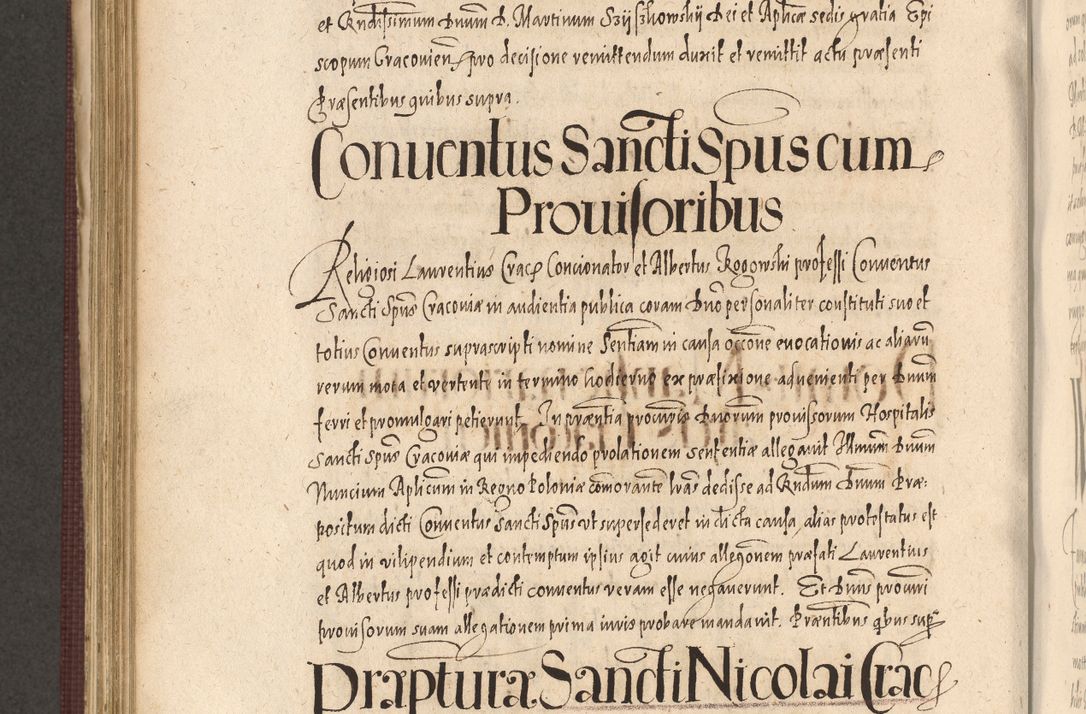 et Rndissimum Dnum D. Martinum Szyszkowskij Dei et Aplicæ sedis gratia Epi
scopum Cracovien pro decisione remittendum duxit et remittit actu præsenti
Præsentibus quibus supra.
Conuentus Sancti Spus cum
Prouisoribus
Religiosi Laurentius Crac Concionator et Albertus Rogowski professi Conventus
Sancti Spus Cracoviæ in audientia publica coram Dno personaliter constituti suo et
totius Conventus suprascripti nomine Sentiam in causa occone evocationis ac aliarum
rerum mota et vertente in termino hodierno ex præfixione advenienti per Dnum
ferri et promulgari petierunt. In præntia procuris Dnorum provissorum Hospitalis
Sancti Spus Cracoviæ qui impediendo prolationem sententiæ allegavit Illmum Dnum
Nuncium Aplicum in Regno Poloniæ comorante lras dedisse ad Rndum Dnum Præ-
positum dicti Conventus Sancti Spus ut supersederet in dicta causa, alias protestatus est
quod in vilipendium et contemptum ipsius agit cuius allegonem præfati Laurentius
et Albertus professi prædicti conventus veram esse negaverunt. Et Dnus
provisorum suam allegationem prima iuris probare mandavit. Præntibus qbus supr
Præpturæ Sancti Nicolai Crac